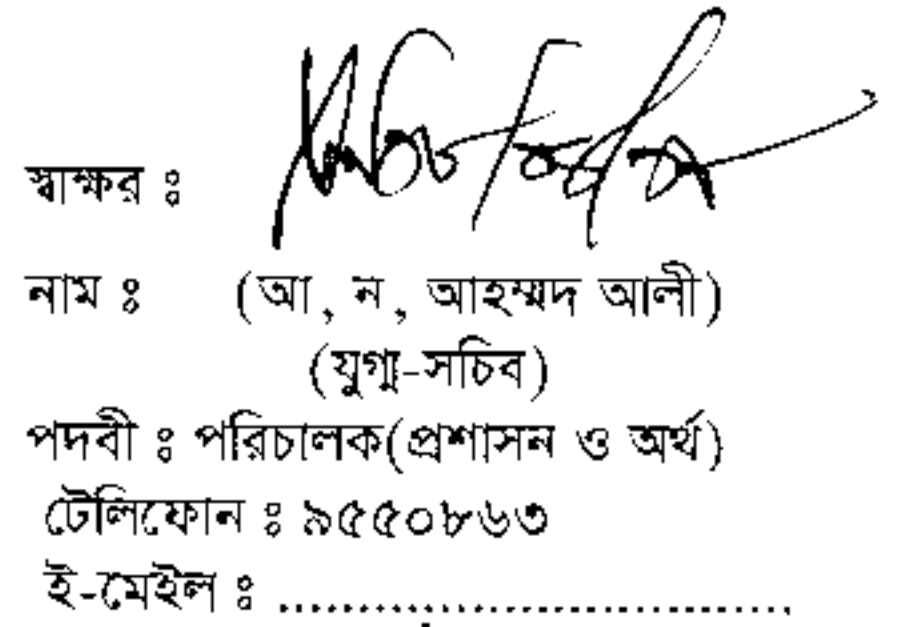 স্বাক্ষর ঃ
নাম ঃ (আ, ন, আহম্মদ আলী)
(যুগ্ম-সচিব)
পদবী ঃ পরিচালক(প্রশাসন ও অর্থ)
টেলিফোন ঃ ৯৫৫০৮৬৩
ই-মেইল ঃ ........................................